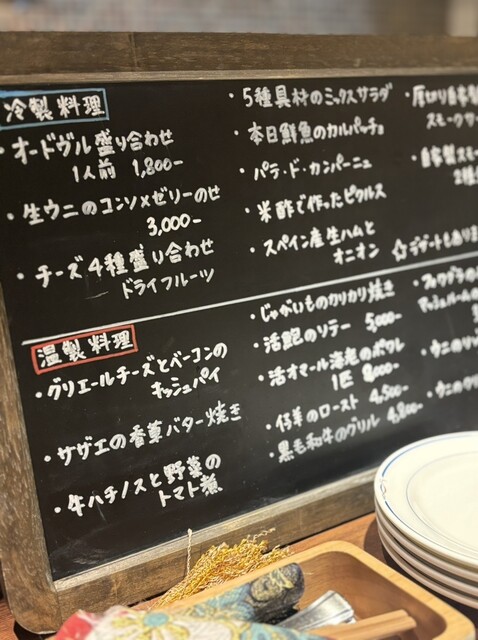 冷製料理
・オードヴル盛り合わせ
1人前 1,800-
・生ウニのコンソメゼリーのせ
3,000-
・チーズ4種盛り合わせ
ドライフルーツ
・5種具材のミックスサラダ
・本日鮮魚のカルパッチョ
・パテ・ド・カンパーニュ
・米酢で作ったピクルス
・スペイン産生ハムと
オニオン
・厚切り自家製
スモークサー
・自家製スモー
2種
☆デザートもありま
温製料理
・グリエールチーズとベーコンの
キッシュパイ
・サザエの香草バター焼き
・牛ハチノスと野菜の
トマト煮
・じゃがいものカリカリ焼き
・活鮑のソテー 5,000-
・活オマール海老のポワレ
1匹 8,000-
・仔羊のロースト 4,500-
・黒毛和牛のグリル 4,800-
・フォワグラの
マッシュルームの
・ウニの
・ウニのク